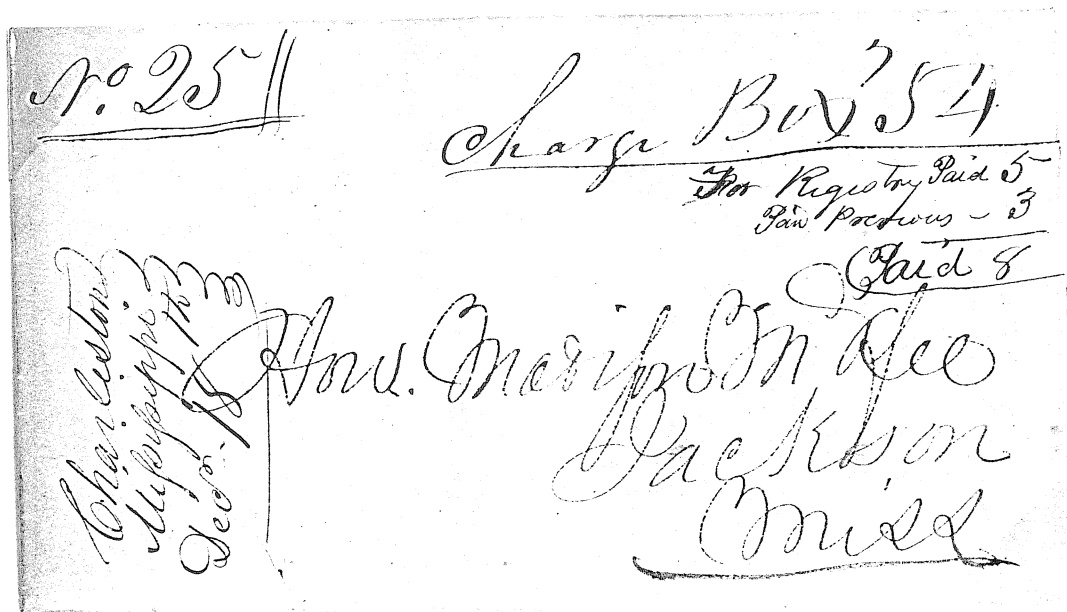 No. 25
Charge Box 54
For Registry Paid 5
Paid Previous - 3
Paid 8
Charleston
Mississippi
Decr. 18th
Hon. Marion McKee
Jackson
Miss